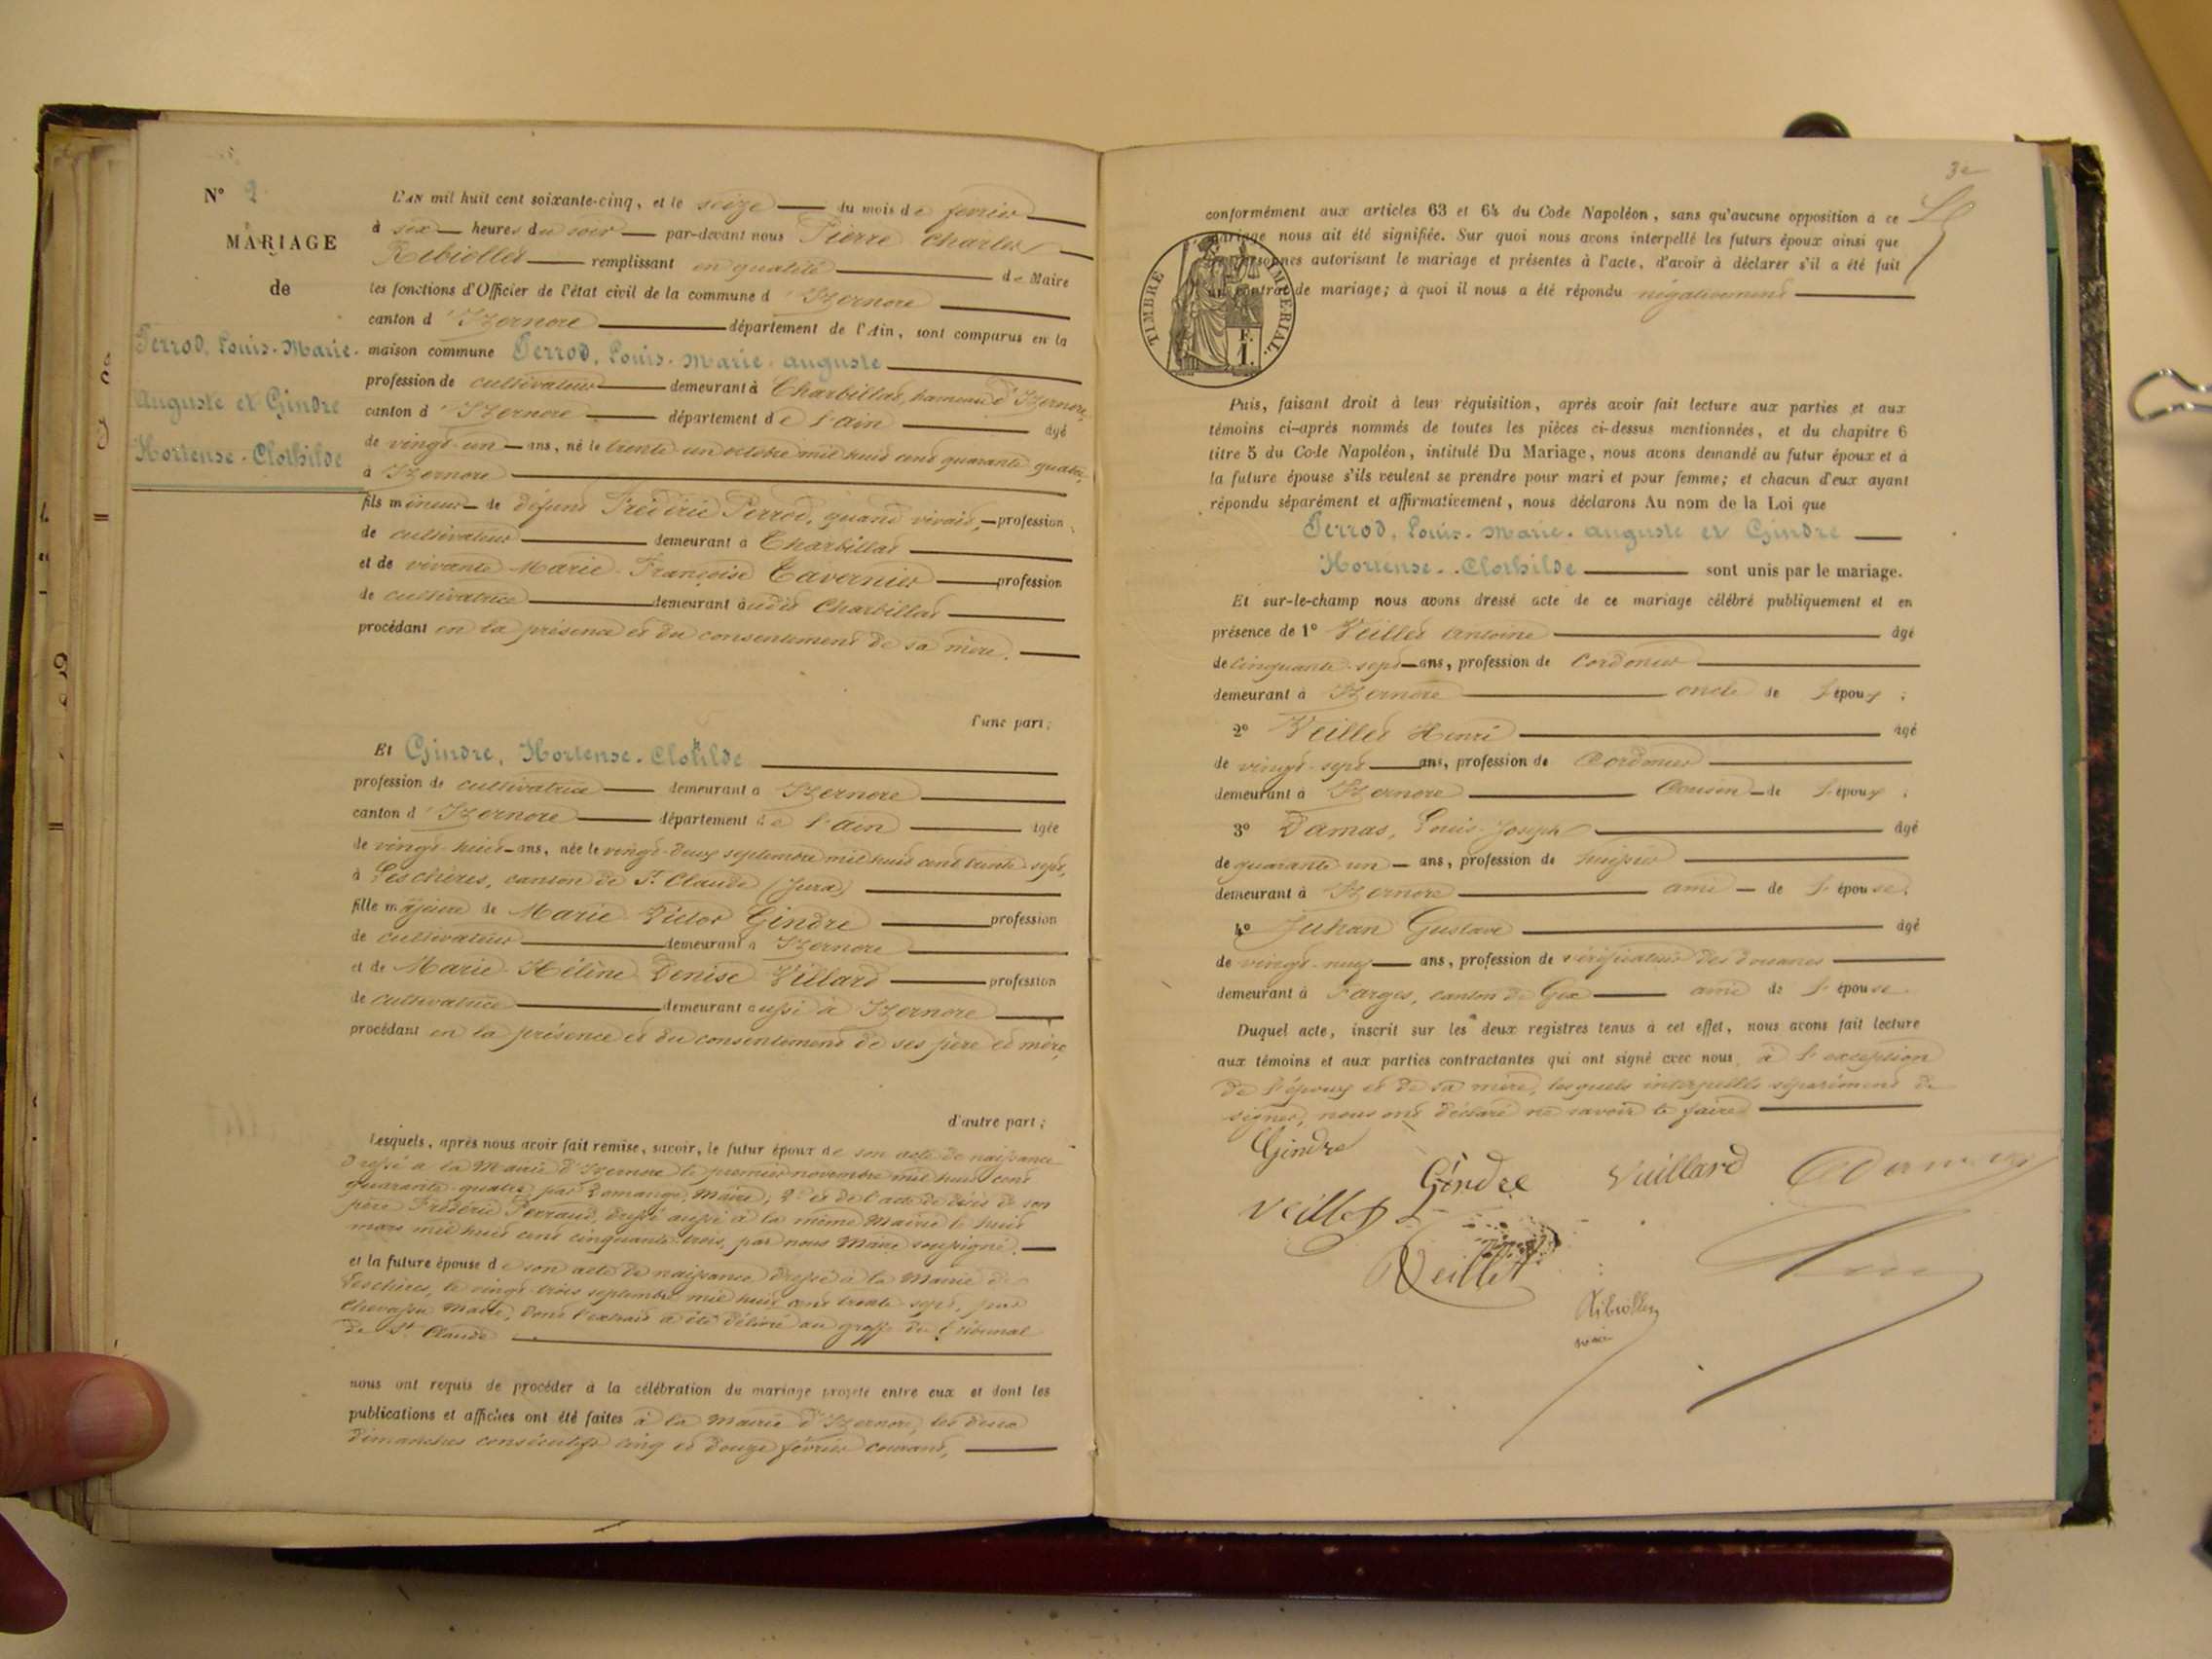 N° 2
MARIAGE
de
Perrod, Louis-Marie-
Auguste et Gindre
Hortense-Clothilde
L'AN mil huit cent soixante-cinq, et le seize du mois de fevrier
à six heures du soir par-devant nous Pierre Charles
Rebiollet remplissant en qualité de Maire
les fonctions d'Officier de l'état civil de la commune d'Izernore
canton d'Izernore département de l'Ain, sont comparus en la
maison commune Perrod, Louis-Marie-auguste
profession de cultivateur demeurant à Charbillat, hameau d'Izernore,
canton d'Izernore département de l'ain âgé
de vingt-un ans, né le trente un octobre mil huit cent quarante quatre,
à Izernore
fils mineur de défunt Frédéric Perrod, quand vivait, profession
de cultivateur demeurant à Charbillat
et de vivante Marie Françoise Tavernier profession
de cultivatrice demeurant audit Charbillat
procédant en la présence et du consentement de sa mère.
d'une part;
Et Gindre, Hortense-Clothilde
profession de cultivatrice demeurant à Izernore
canton d'Izernore département de l'ain âgée
de vingt-huit ans, née le vingt-deux septembre mil huit cent trente-sept,
à Leschères, canton de St. Claude (Jura)
fille majeure de Marie Victor Gindre profession
de cultivateur demeurant à Izernore
et de Marie Hélène Denise Villard profession
de cultivatrice demeurant aussi à Izernore
procédant en la présence et du consentement de ses père et mère,
d'autre part;
Lesquels, après nous avoir fait remise, savoir, le futur époux de son acte de naissance
dressé à la Mairie d'Izernore le premier novembre mil huit cent
quarante-quatre, par Romange, Maire; 2° et de l'acte de décès de son
père Frédéric Perraud, dressé aussi à la même Mairie le huit
mars mil huit cent cinquante-trois, par nous Maire soussigné.
et la future épouse de son acte de naissance dressé à la Mairie de
Leschères, le vingt-trois septembre mil huit cent trente-sept, par
Chevassu Maire, dont l'extrait a été délivré au greffe du tribunal
de St Claude
nous ont requis de procéder à la célébration du mariage projeté entre eux et dont les
publications et affiches ont été faites à la Mairie d'Izernore, les deux
dimanches consécutifs cinq et douze février courant,
conformément aux articles 63 et 64 du Code Napoléon, sans qu'aucune opposition à ce
mariage nous ait été signifiée. Sur quoi nous avons interpellé les futurs époux ainsi que
personnes autorisant le mariage et présentes à l'acte, d'avoir à déclarer s'il a été fait
un contrat de mariage; à quoi il nous a été répondu négativement
TIMBRE IMPÉRIAL.
F.
1.
Puis, faisant droit à leur réquisition, après avoir fait lecture aux parties et aux
témoins ci-après nommés de toutes les pièces ci-dessus mentionnées, et du chapitre 6
titre 5 du Code Napoléon, intitulé Du Mariage, nous avons demandé au futur époux et à
la future épouse s'ils veulent se prendre pour mari et pour femme; et chacun d'eux ayant
répondu séparément et affirmativement, nous déclarons Au nom de la Loi que
Perrod, Louis-Marie-auguste et Gindre
Hortense-Clothilde sont unis par le mariage.
Et sur-le-champ nous avons dressé acte de ce mariage célébré publiquement et en
présence de 1° Veillet antoine âgé
de cinquante-sept ans, profession de Cordonier
demeurant à Izernore oncle de l'époux;
2° Veillet Henri âgé
de vingt-sept ans, profession de Cordonier
demeurant à Izernore Cousin de l'époux;
3° Damas, Louis-Joseph âgé
de quarante-un ans, profession de huissier
demeurant à Izernore ami de l'épouse;
4° Juhan Gustave âgé
de vingt-neuf ans, profession de vérificateur des douanes
demeurant à Farges, canton de Gex ami de l'épouse
Duquel acte, inscrit sur les deux registres tenus à cet effet, nous avons fait lecture
aux témoins et aux parties contractantes qui ont signé avec nous, à l'exception
de l'époux et de sa mère, lesquels interpellés séparément de
signer, nous ont déclaré ne savoir le faire
Gindre
Gindre Vuillard
Veillet
Veillet